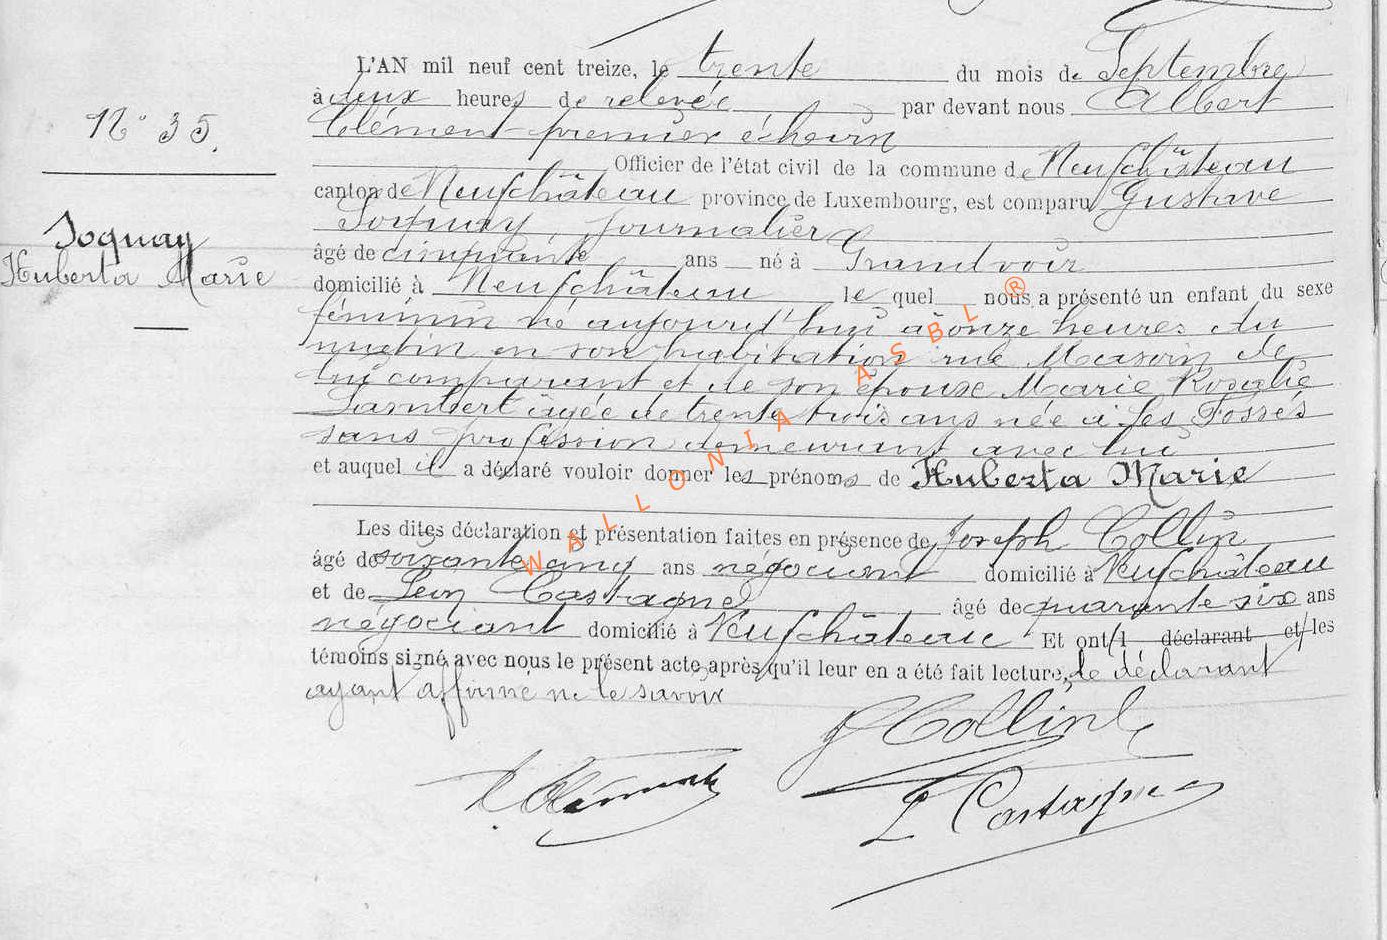 L'AN mil neuf cent treize, le trente du mois de Septembre
à deux heures de relevée par devant nous Albert
Clément premier échevin
N° 35.
Officier de l'état civil de la commune de Neufchâteau
canton de Neufchâteau province de Luxembourg, est comparu Gustave
Joquay, journalier
Joquay
Huberta Marie
âgé de cinquante ans né à Grandvoir
domicilié à Neufchâteau le quel nous a présenté un enfant du sexe
féminin né aujourd'hui à onze heures du
matin en son habitation rue Masoin de
lui comparant et de son épouse Marie Rosalie
Lambert âgée de trente trois ans née à les Fossés
sans profession demeurant avec lui
et auquel il a déclaré vouloir donner les prénoms de Huberta Marie
Les dites déclaration et présentation faites en présence de Joseph Collin
âgé de soixante cinq ans négociant domicilié à Neufchâteau
et de Léon Castagne âgé de quarante six ans
négociant domicilié à Neufchâteau Et ont l déclarant et les
témoins signé avec nous le présent acte après qu'il leur en a été fait lecture, le déclarant
ayant affirmé ne le savoir
J Collin
A Clément
L Castagne
WALLONIA ASBL ®